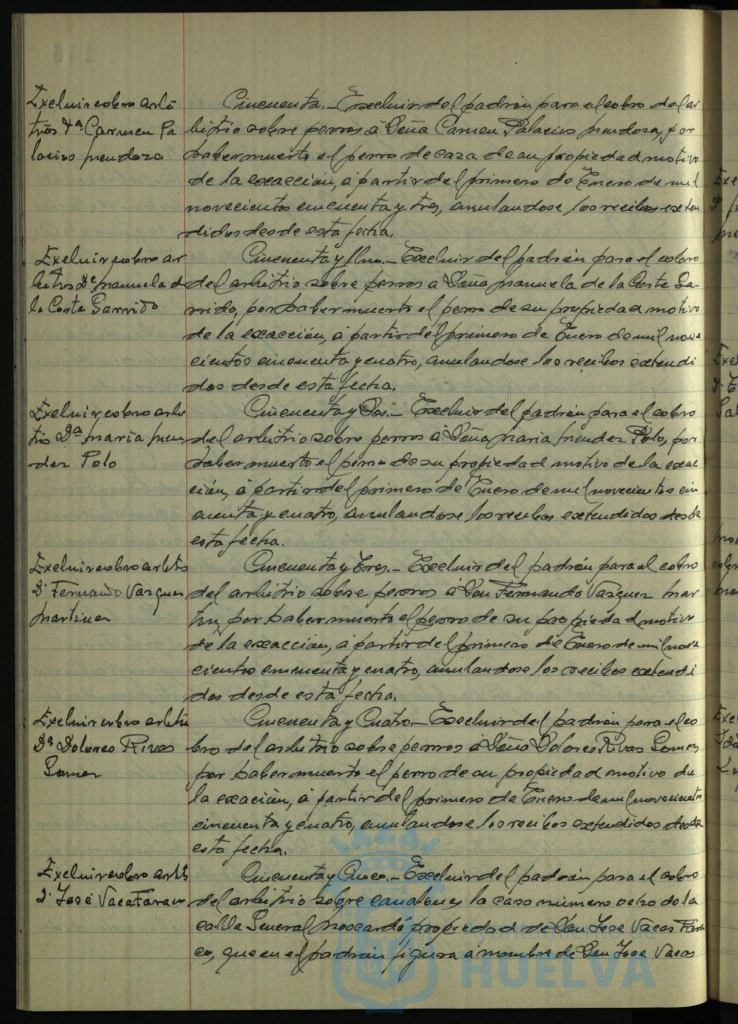 Excluir cobro arbi
trios Dª Carmen Pa
lacios Mendoza
Cincuenta.- Excluir del padrón para el cobro del ar
bitrio sobre perros á Doña Carmen Palacios Mendoza, por
haber muerto el perro de caza de su propiedad motivo
de la exacción, á partir del primero de Enero de mil
novecientos cincuenta y tres, anulandose los recibos exten
didos desde esta fecha.
Excluir cobro ar
bitros Dª Manuela d
la Corte Garrido
Cincuenta y Uno.- Excluir del padrón para el cobro
del arbitrio sobre perros a Doña Manuela de la Corte Ga
rrido, por haber muerto el perro de su propiedad motivo
de la exacción, á partir del primero de Enero de mil nove
cientos cincuenta y cuatro, anulandose los recibos extendi
dos desde esta fecha.
Excluir cobro arbi
trio Dª María Men
dez Polo
Cincuenta y Dos.- Excluir del padrón para el cobro
del arbitrio sobre perros á Doña Maria Mendez Polo, por
haber muerto el perro de su propiedad motivo de la exac
ción, á partir del primero de Enero de mil novecientos cin
cuenta y cuatro, anulandose los recibos extendidos desde
esta fecha.
Excluir cobro arbts
Dn Fernando Vazquez
Martinez
Cincuenta y Tres.- Excluir del padrón para el cobro
del arbitrio sobre perros á Don Fernando Vazquez Mar
tinez, por haber muerto el perro de su propiedad motivo
de la exacción, á partir del primero de Enero de mil nove
cientos cincuenta y cuatro, anulandose los recibos extendi
dos desde esta fecha.
Excluir cobro arbitrio
Dª Dolores Rivas
Gomez
Cincuenta y Cuatro.- Excluir del padrón para el co
bro del arbitrio sobre perros á Doña Dolores Rivas Gomez
por haber muerto el perro de su propiedad motivo de
la exacción, á partir del primero de Enero de mil novecientos
cincuenta y cuatro, anulandose los recibos extendidos desde
esta fecha.
Excluir cobro arbts
Dn José Vaca
Cincuenta y Cinco.- Excluir del padrón para el cobro
del arbitrio sobre canalones la casa número ocho de la
calle General Moscardó propiedad de Don Jose Vacas
que en el padrón figura á nombre de Don Jose Vacas
HUELVA